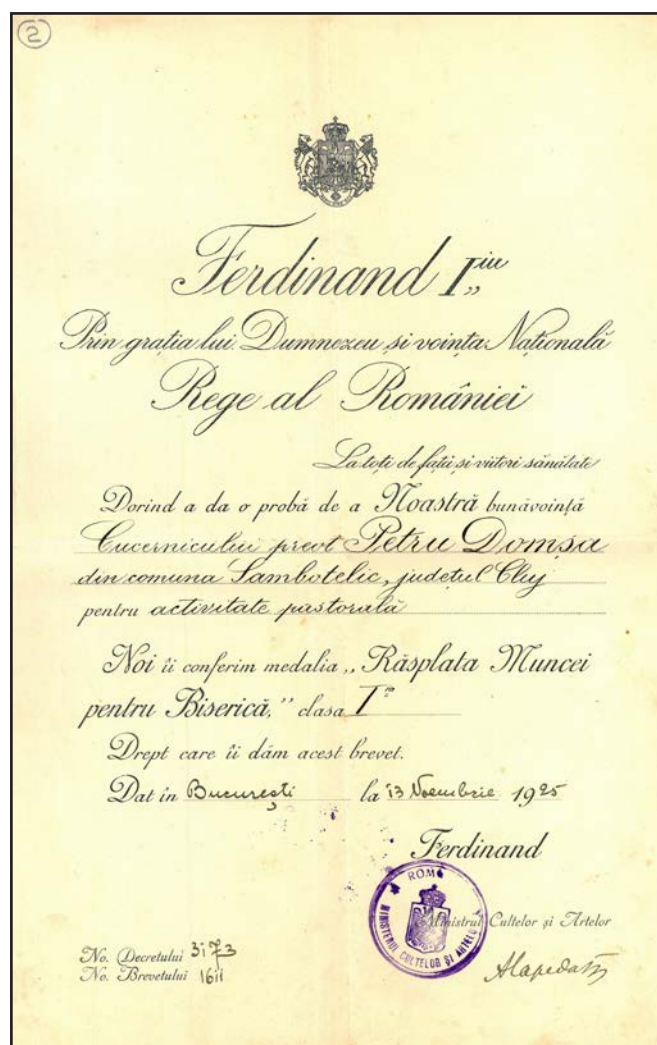 2
Ferdinand I^iu
Prin grația lui Dumnezeu și voința Națională
Rege al României
La toți de față și viitori sănătate
Dorind a da o probă de a Noastră bunăvoință
Cucernicului preot Petru Domșa
din comuna Sambotelic, județul Cluj
pentru activitate pastorală
Noi îi conferim medalia „Răsplata Muncei
pentru Biserică,” clasa I
Drept care îi dăm acest brevet.
Dat în București la 13 Noembrie 1925
Ferdinand
ROMÂ
MINISTERUL CULTELOR ȘI ARTELOR
Ministrul Cultelor și Artelor
No. Decretului 3173
No. Brevetului 1611
Alapedatu